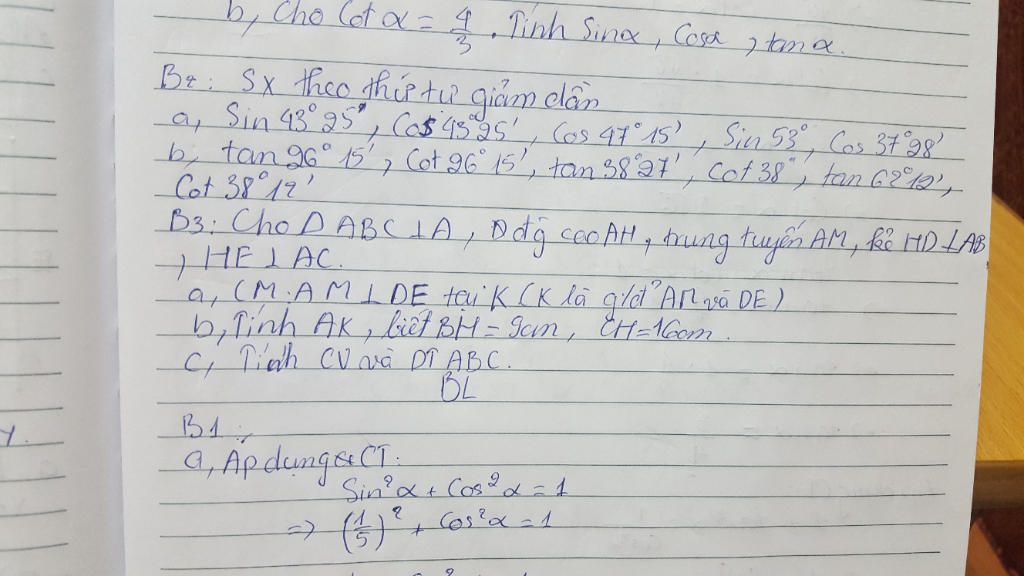 b, Cho Cot α = 4/3. Tính Sinα, Cosα, tanα.
B2: SX theo thứ tự giảm dần
a, Sin 43°25', Cos 43°25', Cos 47°15', Sin 53°, Cos 37°28'
b, tan 26°15', Cot 26°15', tan 38°27', Cot 38°, tan 62°12',
Cot 38°12'
B3: Cho Δ ABC ⊥ A, Đ đg cao AH, trung tuyến AM, kẻ HD ⊥ AB
, HE ⊥ AC.
a, CM: AM ⊥ DE tại K (K là g/đ² AM và DE)
b, Tính AK, biết BH = 9cm, CH = 16cm.
c, Tính CV và DT ABC.
BL
B1:
a, Áp dụng CT:
Sin²α + Cos²α = 1
=> (1/5)² + Cos²α = 1